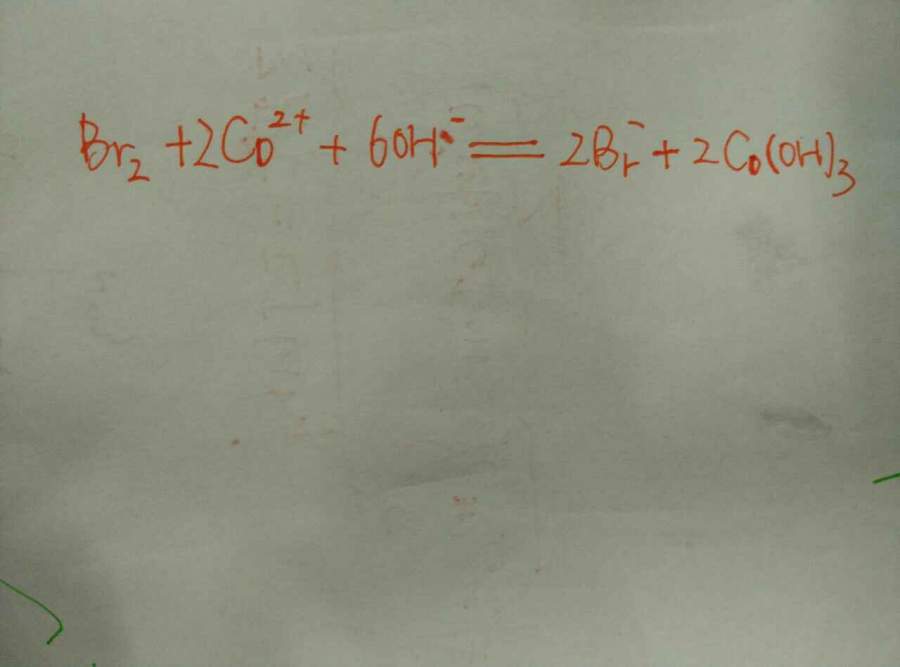 Br₂ + 2Co²⁺ + 6OH⁻ = 2Br⁻ + 2Co(OH)₃